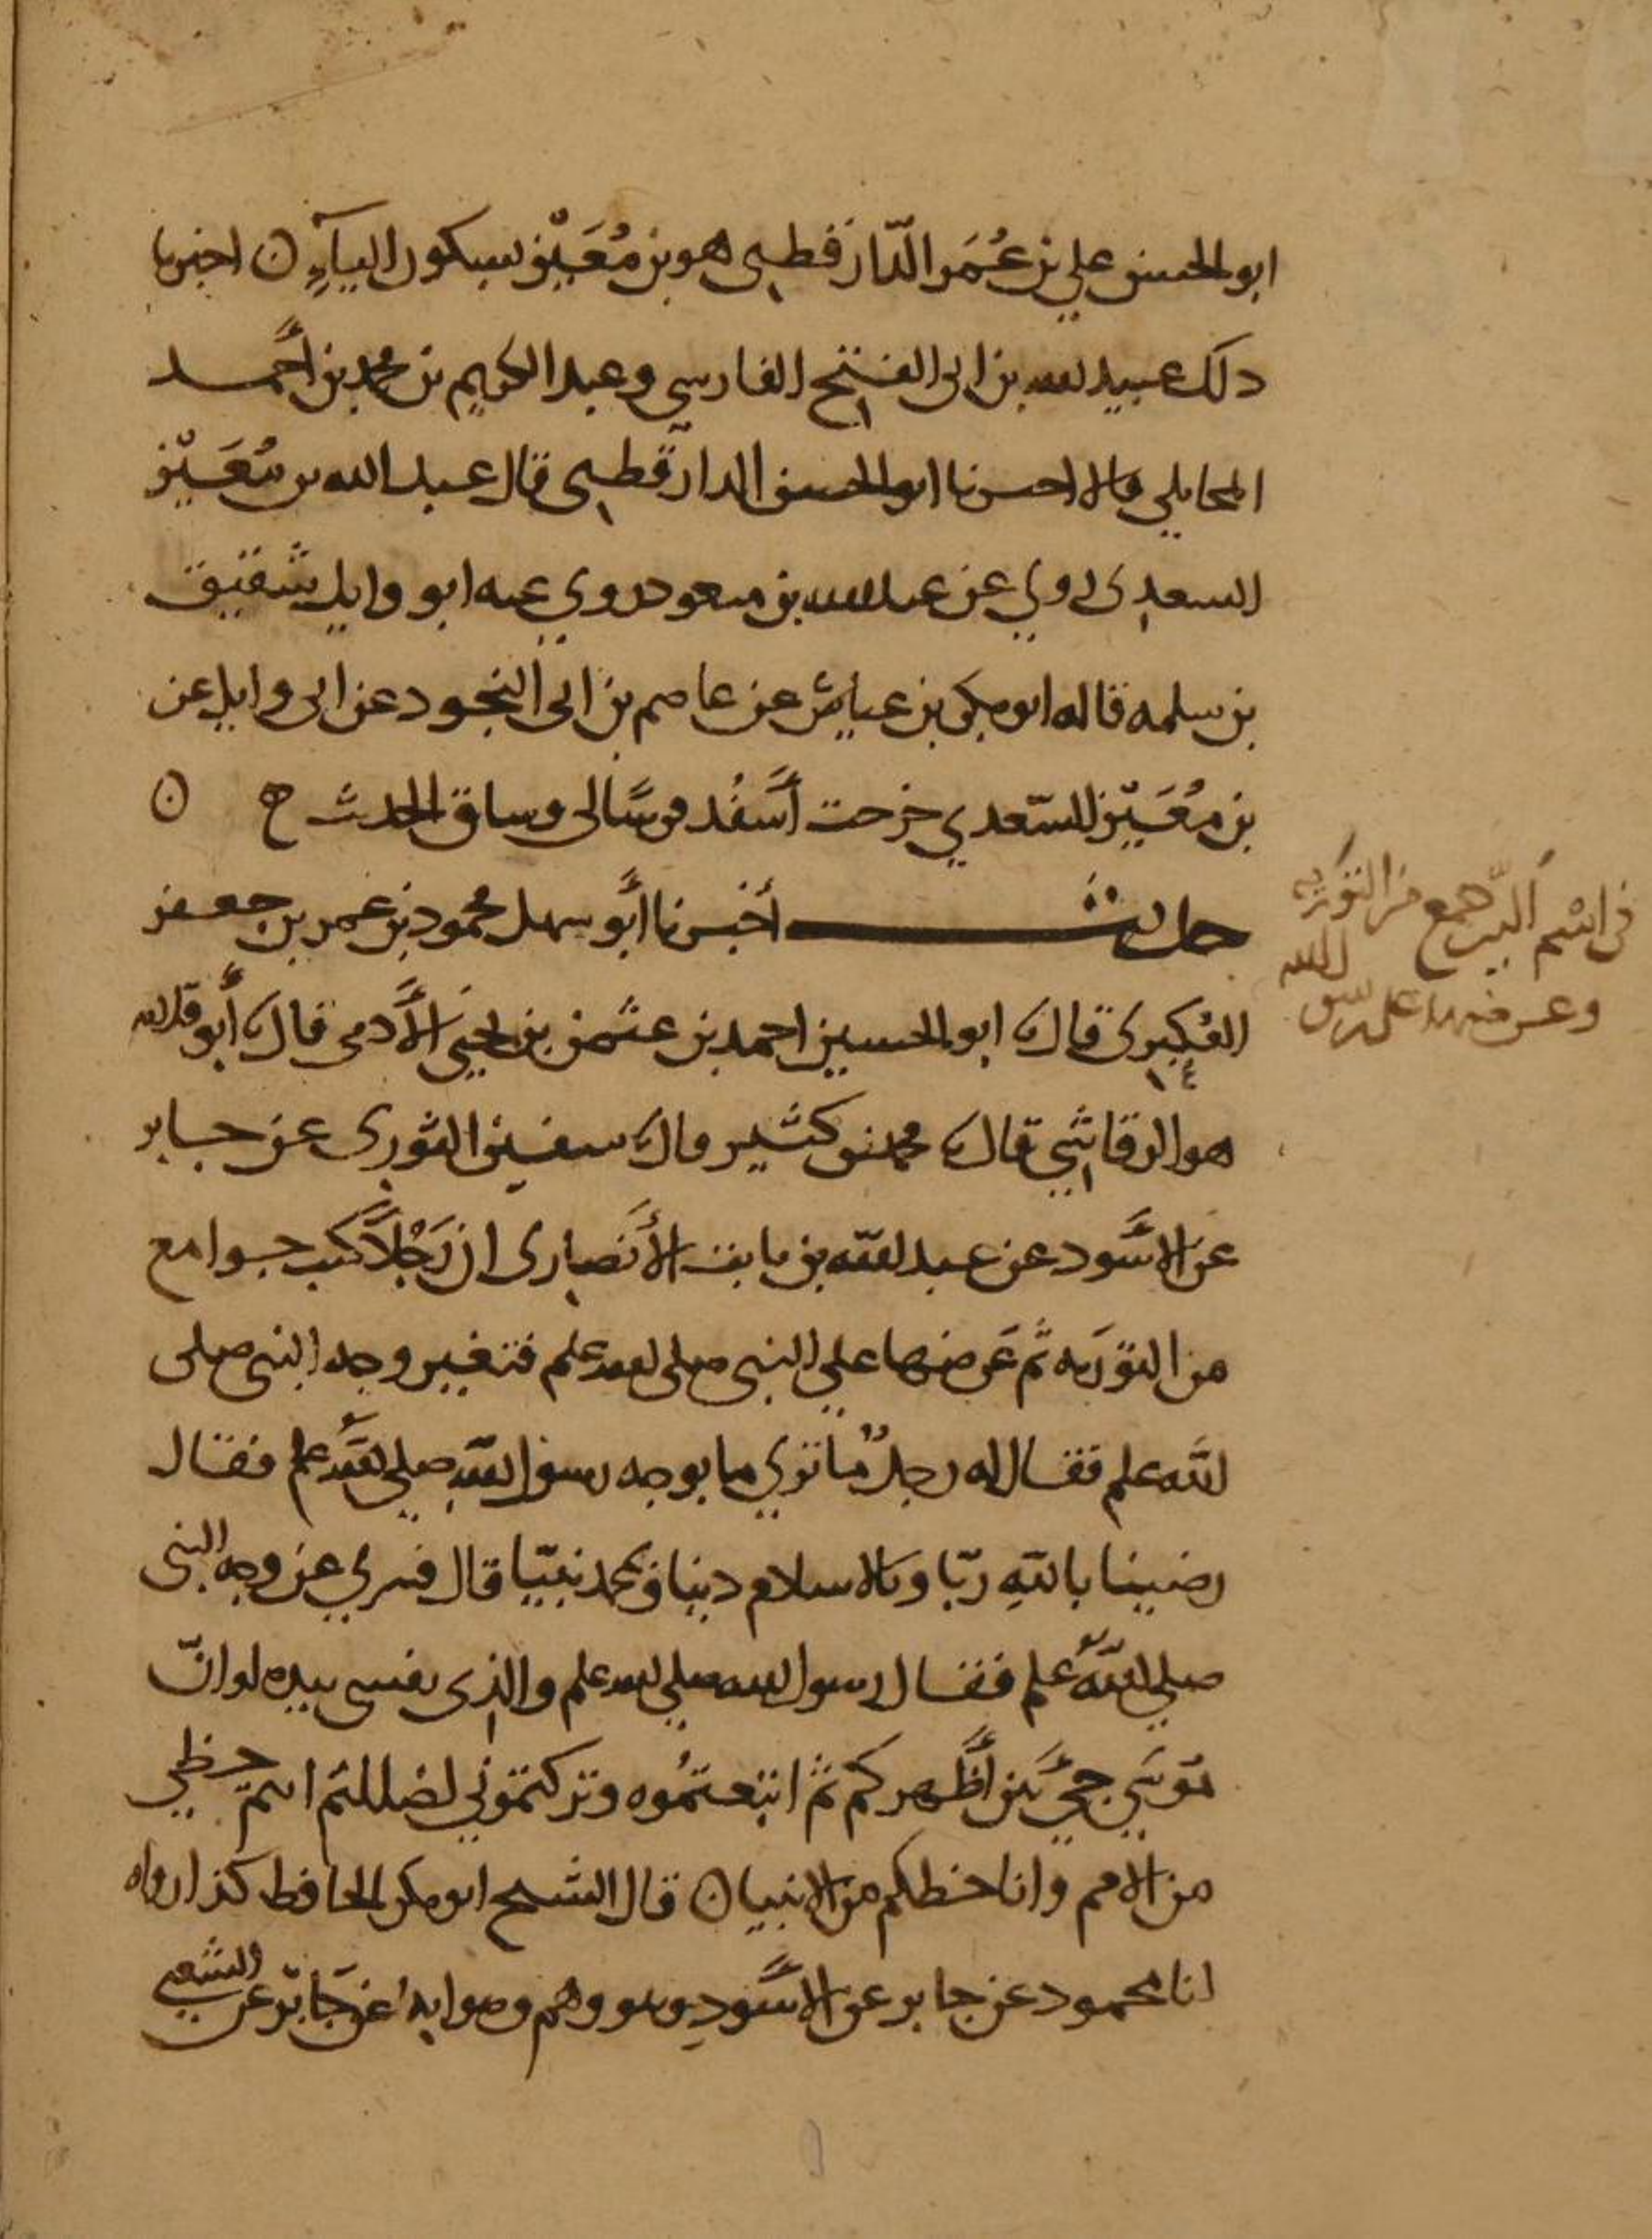 ابو الحسن علي بن عُمَر الدّارقطني هو بن مُعَيْز بسكون اليآءِ ن اخبرنا
دلك عبيد الله بن ابى الفتح الفارسي وعبد الكريم بن محمد بن أحمد
المحاملي قالا احبرنا ابو الحسن الدارقطني قال عبد الله بن مُعَيْز
السعدي روي عن عبد الله بن مسعود روي عنه ابو وايل شقيق
بن سلمه قاله ابو بكر بن عياش عن عاصم بن ابى النجود عن ابى وايل عن
بن مُعَيْز السّعدي خرجت أسْفُد فرسًا لى وساق الحدث ح ن
حديث أخبرنا أبو سهل محمود بن عمر بن جعفر
العُكبري قال ابو الحسين احمد بن عثمن بن يحيَى الأدمى قال أبو قلابه
هو الرقاشي قال محمد بن كثير قال سفين الثوري عن جابر
عن الاسود عن عبد الله بن ثابت الأنصارى ان رَجُلاً كتب جوامع
من التوريه ثم عَرضها على النبى صلى الله علم فتغير وجه النبى صلى
الله علم فقال له رجلٌ ما تري ما بوجه رسول الله صلي الله علم فقال
رضينا بالله ربّا وبالاسلام دينا وبمحمد نبيّا قال فسري عن وجه النبى
صلي الله علم فقال رسول الله صلي الله علم والذى نفسى بيده لو انّ
موسَي حيٌّ بَين أظهركم ثم اتبعتمُوه وتركتموني لضللتم انتم حظي
من الامم وانا حظكم من الانبيا ن قال الشيخ ابو بكر الحافظ كذا رواه
انا محمود عن جابر عن الاسْود وهو وهم وصوابه عن جَابر عن الشعبي
في اسْم الذي جمع من التوريه
وعرضها على رسول الله